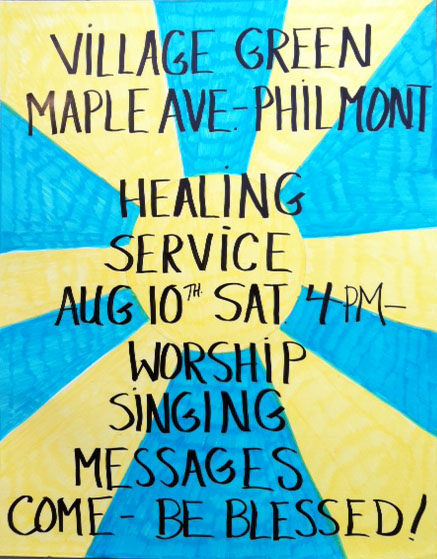 VILLAGE GREEN
MAPLE AVE.-PHILMONT
HEALING
SERVICE
AUG 10TH. SAT 4-PM-
WORSHIP
SINGING
MESSAGES
COME - BE BLESSED!